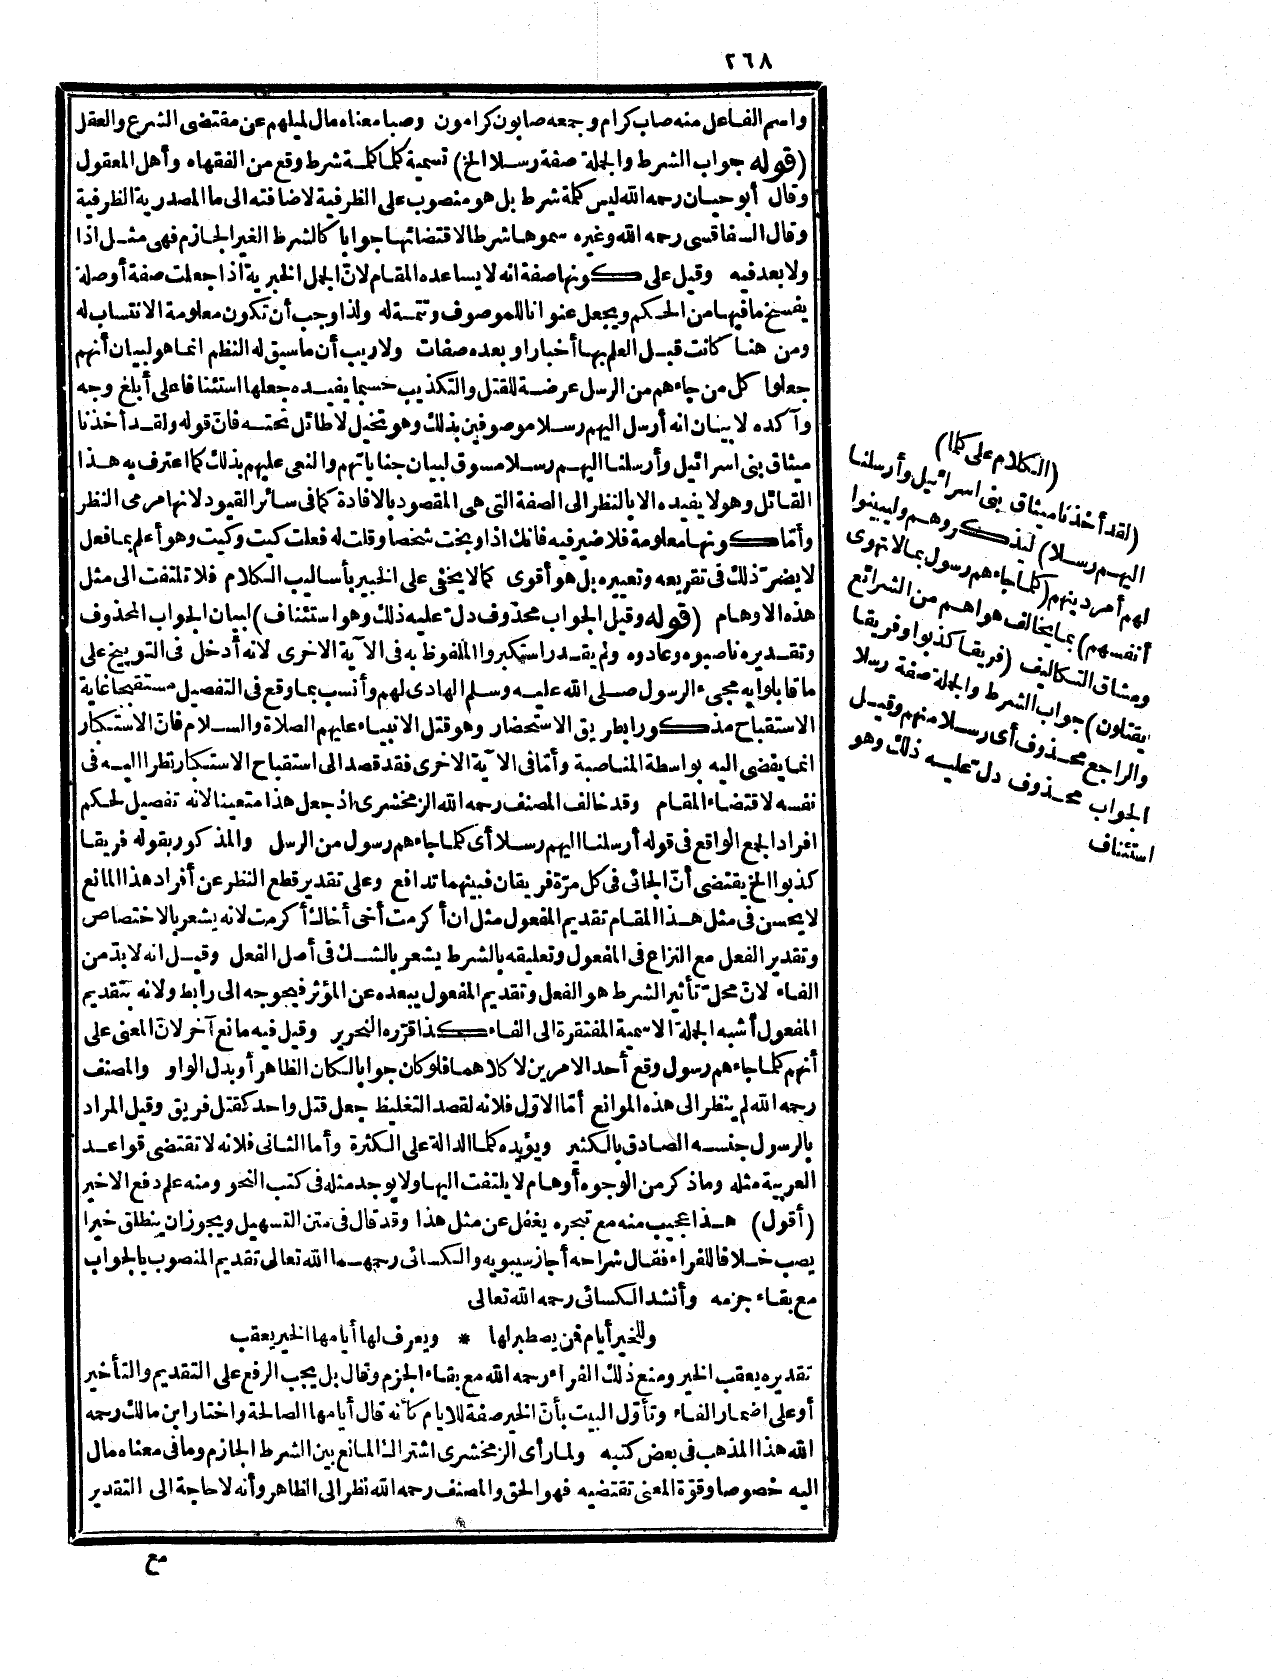 ٢٦٨
واسم الفاعل منه صاب كرام وجمعه صابون كرامون وصبا معناه مال لميلهم عن مقتضى الشرع والعقل
(قوله جواب الشرط والجملة صفة رسلا الخ) تسمية كلما كلمة شرط وقع من الفقهاء وأهل المعقول
وقال أبو حيان رحمه الله ليس كلمة شرط بل هو منصوب على الظرفية لاضافته الى ما المصدرية الظرفية
وقال السفاقسى رحمه الله وغيره سموها شرطا لاقتضائها جوابا كالشرط الغير الجازم فهى مثل اذا
ولا بعد فيه وقيل على كونها صفة انه لا يساعده المقام لانّ الجمل الخبرية اذا جعلت صفة أو صلة
يفسخ ما فيها من الحكم ويجعل عنوانا للموصوف وتتمة له ولذا وجب أن تكون معلومة الانتساب له
ومن هنا كانت قبل العلم بها أخبارا وبعده صفات ولا ريب أن ما سيق له النظم انما هو لبيان أنهم
جعلوا كل من جاءهم من الرسل عرضة للقتل والتكذيب حسبما يفيده جعلها استئنافا على أبلغ وجه
وآكده لا بيان انه أرسل اليهم رسلا موصوفين بذلك وهو تخيل لا طائل تحته فانّ قوله ولقد أخذنا
ميثاق بنى اسرائيل وأرسلنا اليهم رسلا مسوق لبيان جناياتهم والنعى عليهم بذلك كما اعترف به هذا
القائل وهو لا يفيده الا بالنظر الى الصفة التى هى المقصود بالافادة كما فى سائر القيود لانها مرمى النظر
وأمّا كونها معلومة فلا ضير فيه فانك اذا وبخت شخصا وقلت له فعلت كيت وكيت وهو أعلم بما فعل
لا يضرّ ذلك فى تقريعه وتعييره بل هو أقوى كما لا يخفى على الخبير بأساليب الكلام فلا تلتفت الى مثل
هذه الاوهام (قوله وقيل الجواب محذوف دلّ عليه ذلك وهو استئناف) لبيان الجواب المحذوف
وتقديره ناصبوه وعادوه ولم يقدر استكبروا الملفوظ به فى الآية الاخرى لانه أدخل فى التوبيخ على
ما قابلوا به مجىء الرسول صلى الله عليه وسلم الهادى لهم وأنسب بما وقع فى التفصيل مستقبحا غاية
الاستقباح مذكورا بطريق الاستحضار وهو قتل الانبياء عليهم الصلاة والسلام فانّ الاستكبار
انما يفضى اليه بواسطة المناصبة وأمّا فى الآية الاخرى فقد قصد الى استقباح الاستكبار نظرا اليه فى
نفسه لاقتضاء المقام وقد خالف المصنف رحمه الله الزمخشرى اذ جعل هذا متعينا لانه تفصيل لحكم
افراد الجمع الواقع فى قوله أرسلنا اليهم رسلا أى كلما جاءهم رسول من الرسل والمذكور بقوله فريقا
كذبوا الخ يقتضى أنّ الجائى فى كل مرّة فريقان فبينهما تدافع وعلى تقدير قطع النظر عن أفراد هذا المانع
لا يحسن فى مثل هذا المقام تقديم المفعول مثل ان أكرمت أخى أخاك أكرمت لانه يشعر بالاختصاص
وتقدير الفعل مع النزاع فى المفعول وتعليقه بالشرط يشعر بالشك فى أصل الفعل وقيل انه لا بدّ من
الفاء لانّ محلّ تأثير الشرط هو الفعل وتقديم المفعول يبعده عن المؤثر فيحوجه الى رابط ولانه بتقديم
المفعول أشبه الجملة الاسمية المفتقرة الى الفاء كذا قرّره النحرير وقيل فيه مانع آخر لانّ المعنى على
أنهم كلما جاءهم رسول وقع أحد الامرين لا كلاهما فلو كان جوابا لكان الظاهر أو بدل الواو والمصنف
رحمه الله لم ينظر الى هذه الموانع أمّا الاوّل فلانه لقصد التغليظ جعل قتل واحد كقتل فريق وقيل المراد
بالرسول جنسه الصادق بالكثير ويؤيده كلما الدالة على الكثرة وأما الثانى فلانه لا تقتضى قواعد
العربية مثله وما ذكر من الوجوه أوهام لا يلتفت اليها ولا يوجد مثله فى كتب النحو ومنه علم دفع الاخير
(أقول) هذا عجيب منه مع تبحره يغفل عن مثل هذا وقد قال فى متن التسهيل ويجوز ان ينطلق خيرا
يصب خلافا للفراء فقال شراحه أجاز سيبويه والكسائى رحمهما الله تعالى تقديم المنصوب بالجواب
مع بقاء جزمه وأنشد الكسائى رحمه الله تعالى
وللخير أيام فمن يصطبر لها * ويعرف لها أيامها الخير يعقب
تقديره يعقب الخير ومنع ذلك الفراء رحمه الله مع بقاء الجزم وقال بل يجب الرفع على التقديم والتأخير
أو على اضمار الفاء وتأوّل البيت بأنّ الخير صفة للايام كأنه قال أيامها الصالحة واختار ابن مالك رحمه
الله هذا المذهب فى بعض كتبه ولما رأى الزمخشرى اشتراك المانع بين الشرط الجازم وما فى معناه مال
اليه خصوصا وقوّة المعنى تقتضيه فهو الحق والمصنف رحمه الله نظر الى الظاهر وأنه لا حاجة الى التقدير
مع
(الكلام على كلما)
(لقد أخذنا ميثاق بنى اسرائيل وأرسلنا
اليهم رسلا) ليذكروهم وليبينوا
لهم أمر دينهم (كلما جاءهم رسول بما لا تهوى
أنفسهم) بما يخالف هواهم من الشرائع
ومشاق التكاليف (فريقا كذبوا وفريقا
يقتلون) جواب الشرط والجملة صفة رسلا
والراجع محذوف أى رسلا منهم وقيل
الجواب محذوف دلّ عليه ذلك وهو
استئناف